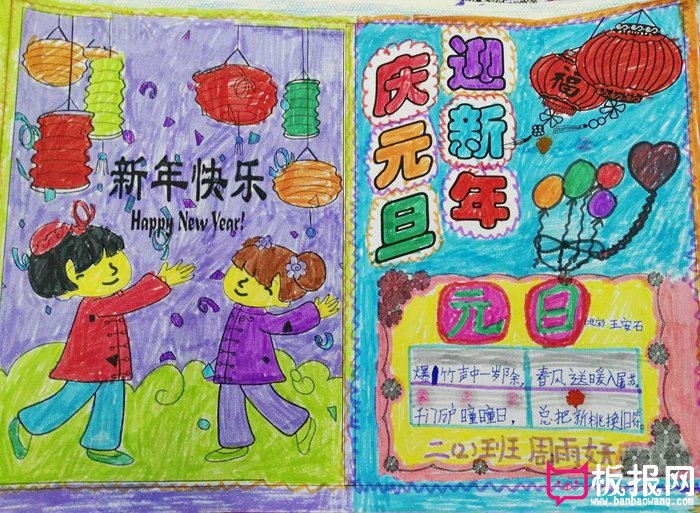 新年快乐
Happy New Year!
迎新年
庆元旦
福
元日
(北宋) 王安石
爆竹声中一岁除， 春风送暖入屠苏。
千门万户瞳瞳日， 总把新桃换旧符。
二(2)班 周雨
板报网
www.banbaowang.com